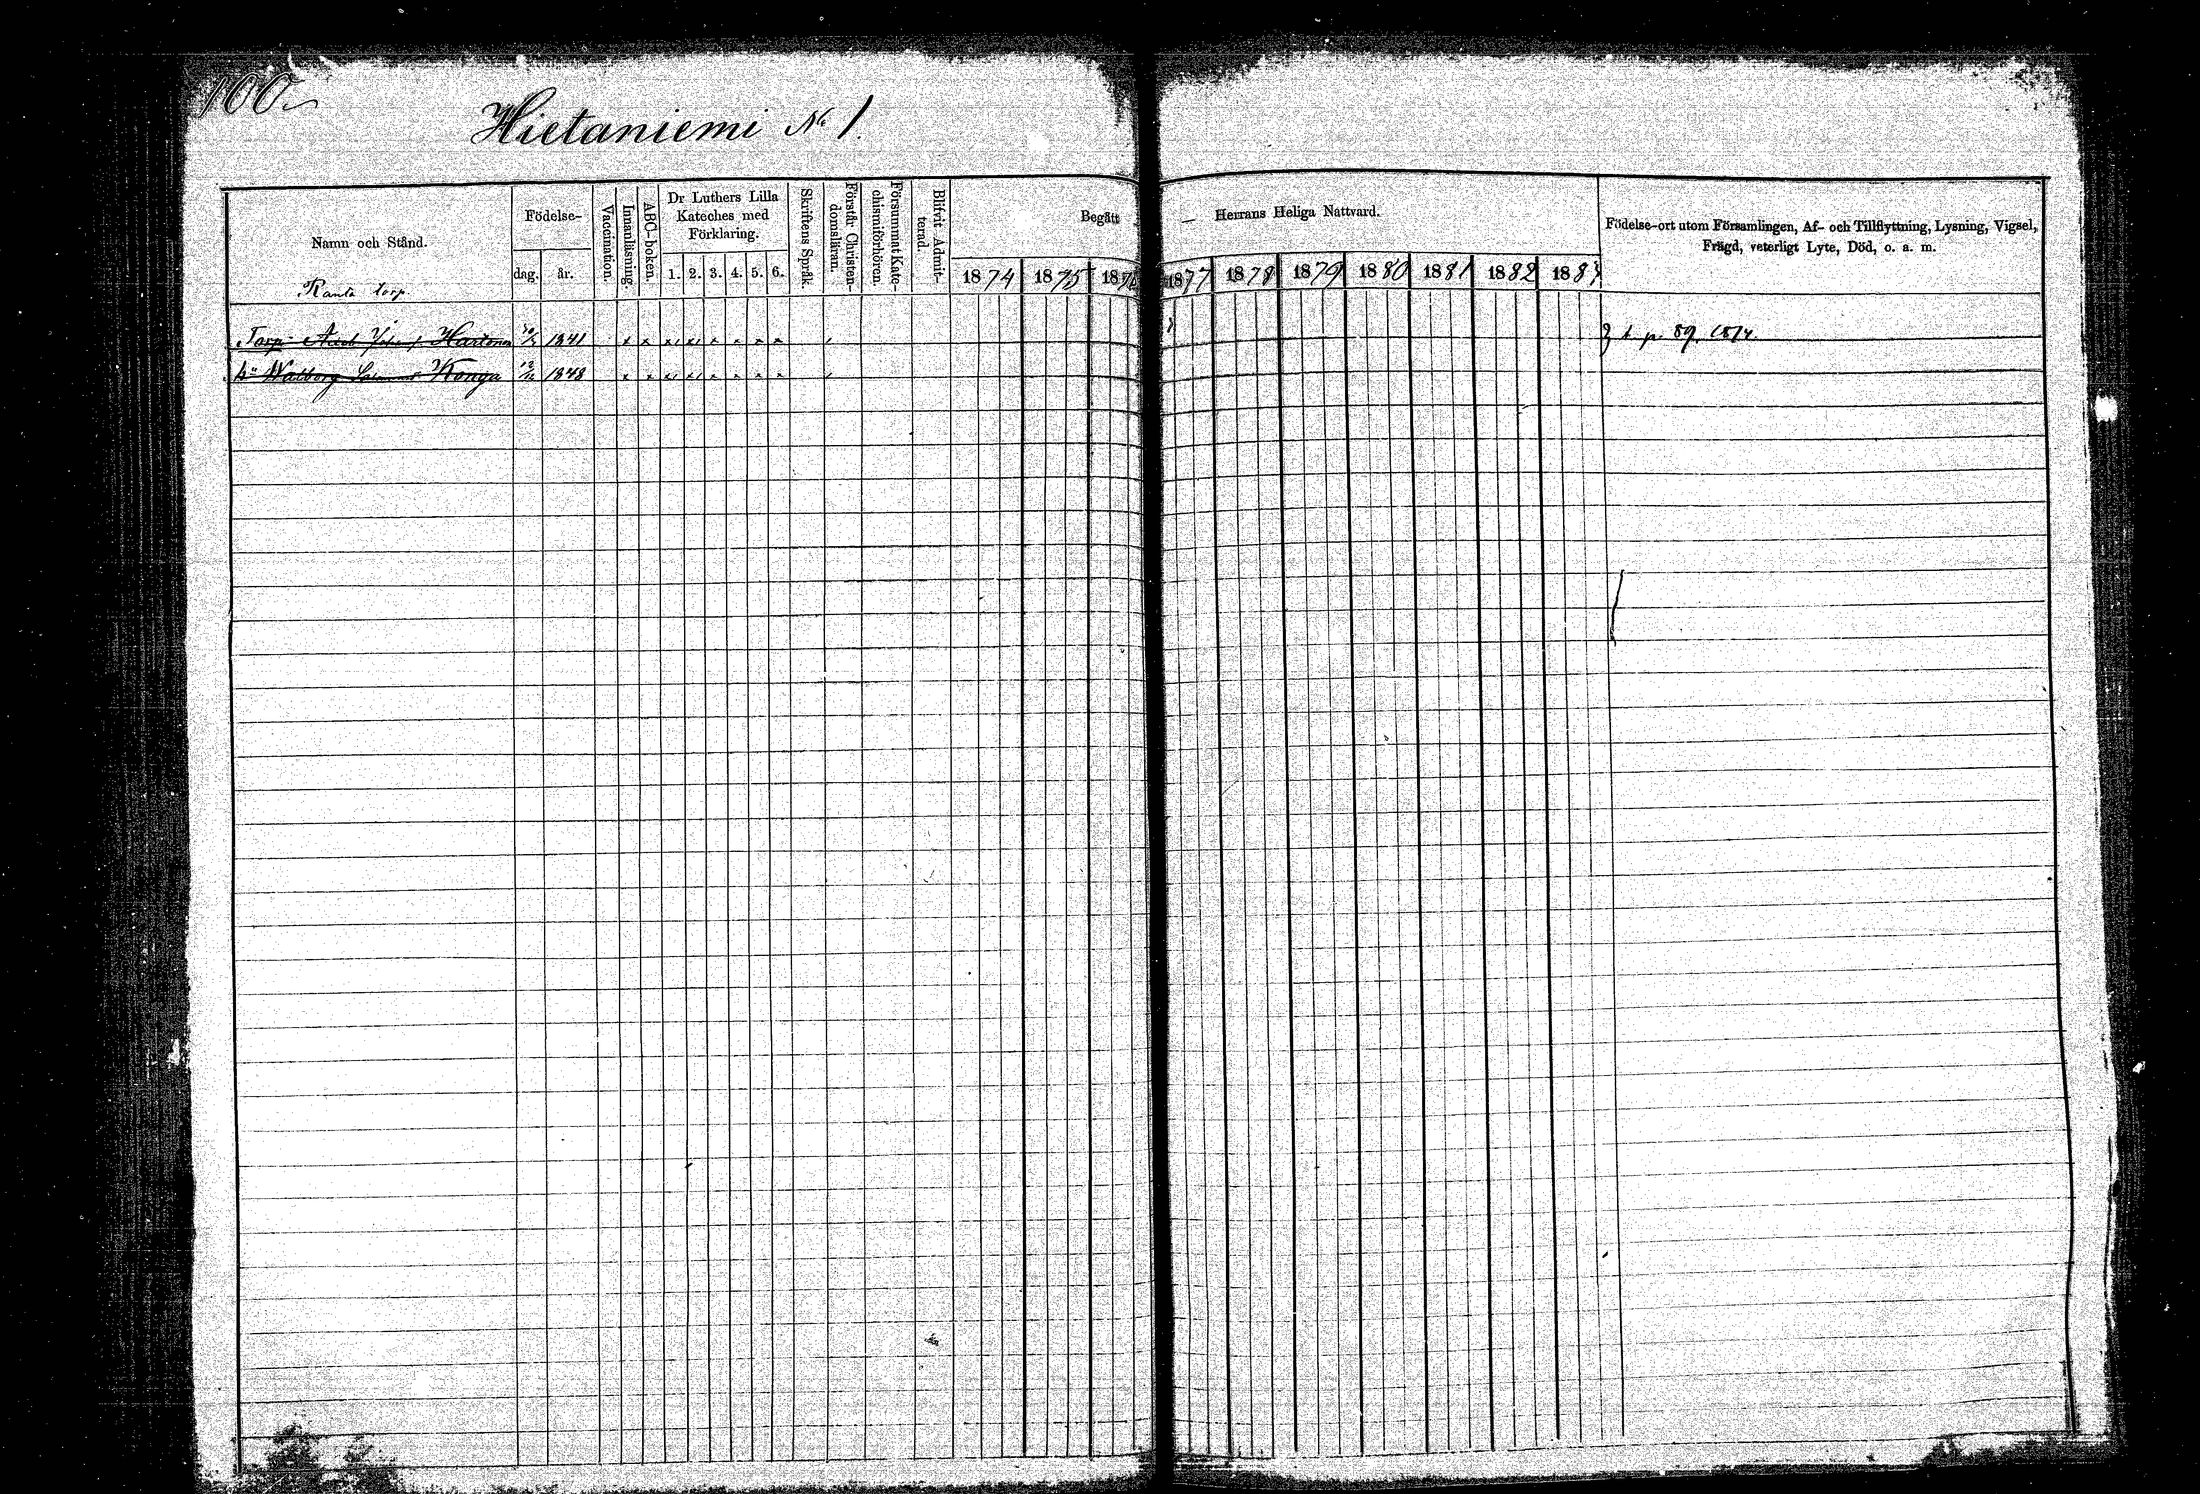 100
Hietaniemi No 1.
Namn och Stånd.
Födelse-
dag. år.
Vaccination.
Innanläsning.
ABC-boken.
Dr Luthers Lilla
Kateches med
Förklaring.
1. 2. 3. 4. 5. 6.
Skriftens Språk.
Förstår Christen-
domsläran.
Försummat Kate-
chismiförhören.
Blifvit Admit-
terad.
Begått — Herrans Heliga Nattvard.
1874 1875 1876 1877 1878 1879 1880 1881 1882 1883
Födelse-ort utom Församlingen, Af- och Tillflyttning, Lysning, Vigsel,
Frägd, veterligt Lyte, Död, o. a. m.
Ranta torp.
Torp. Jacob Hartonen 1841 x x x x x x x x p. 89. 1874.
h:u Walborg Konga 1848 x x x x x x x x